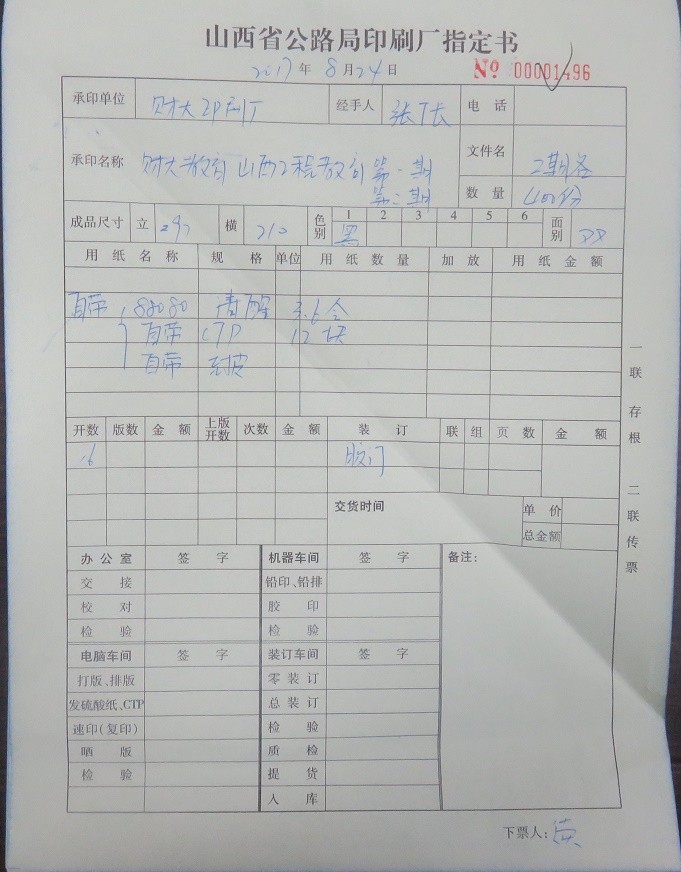 山西省公路局印刷厂指定书
2017年8月24日 № 00001496
承印单位 财大印刷厂 经手人 张厂长 电话
承印名称 财大教育 山西工程教育 第一期 文件名 2期各
第二期 数量 400份
成品尺寸 立 297 横 210 色别 1 2 3 4 5 6 面别
黑
用纸名称 规格 单位 用纸数量 加放 用纸金额
自带 88080 3.6令
自带 CTP 12块
自带 封皮
开数 版数 金额 上版开数 次数 金额 装订 联 组 页数 金额
16 胶订
交货时间 单价
总金额
办公室 签字 机器车间 签字 备注：
交接 铅印、铅排
校对 胶印
检验 检验
电脑车间 签字 装订车间 签字
打版、排版 零装订
发硫酸纸、CTP 总装订
速印（复印） 检验
晒版 质检
检验 提货
入库
一联存根 二联传票
下票人：